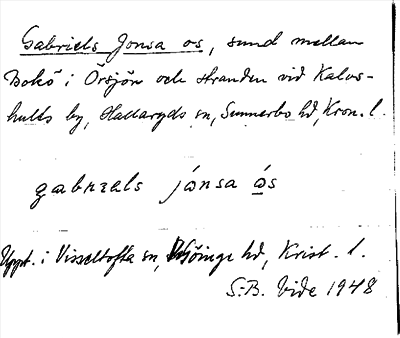 Gabriels Jonsa os, sund mellan
Bokö i Örsjön och stranden vid Kalvs-
hults by, Hallaryds sn, Sunnerbo hd, Kron. l.
gabrɪals jónsa ós
Uppt. i Visseltofta sn, V. Göinge hd, Krist. l.
S.-B. Vide 1948